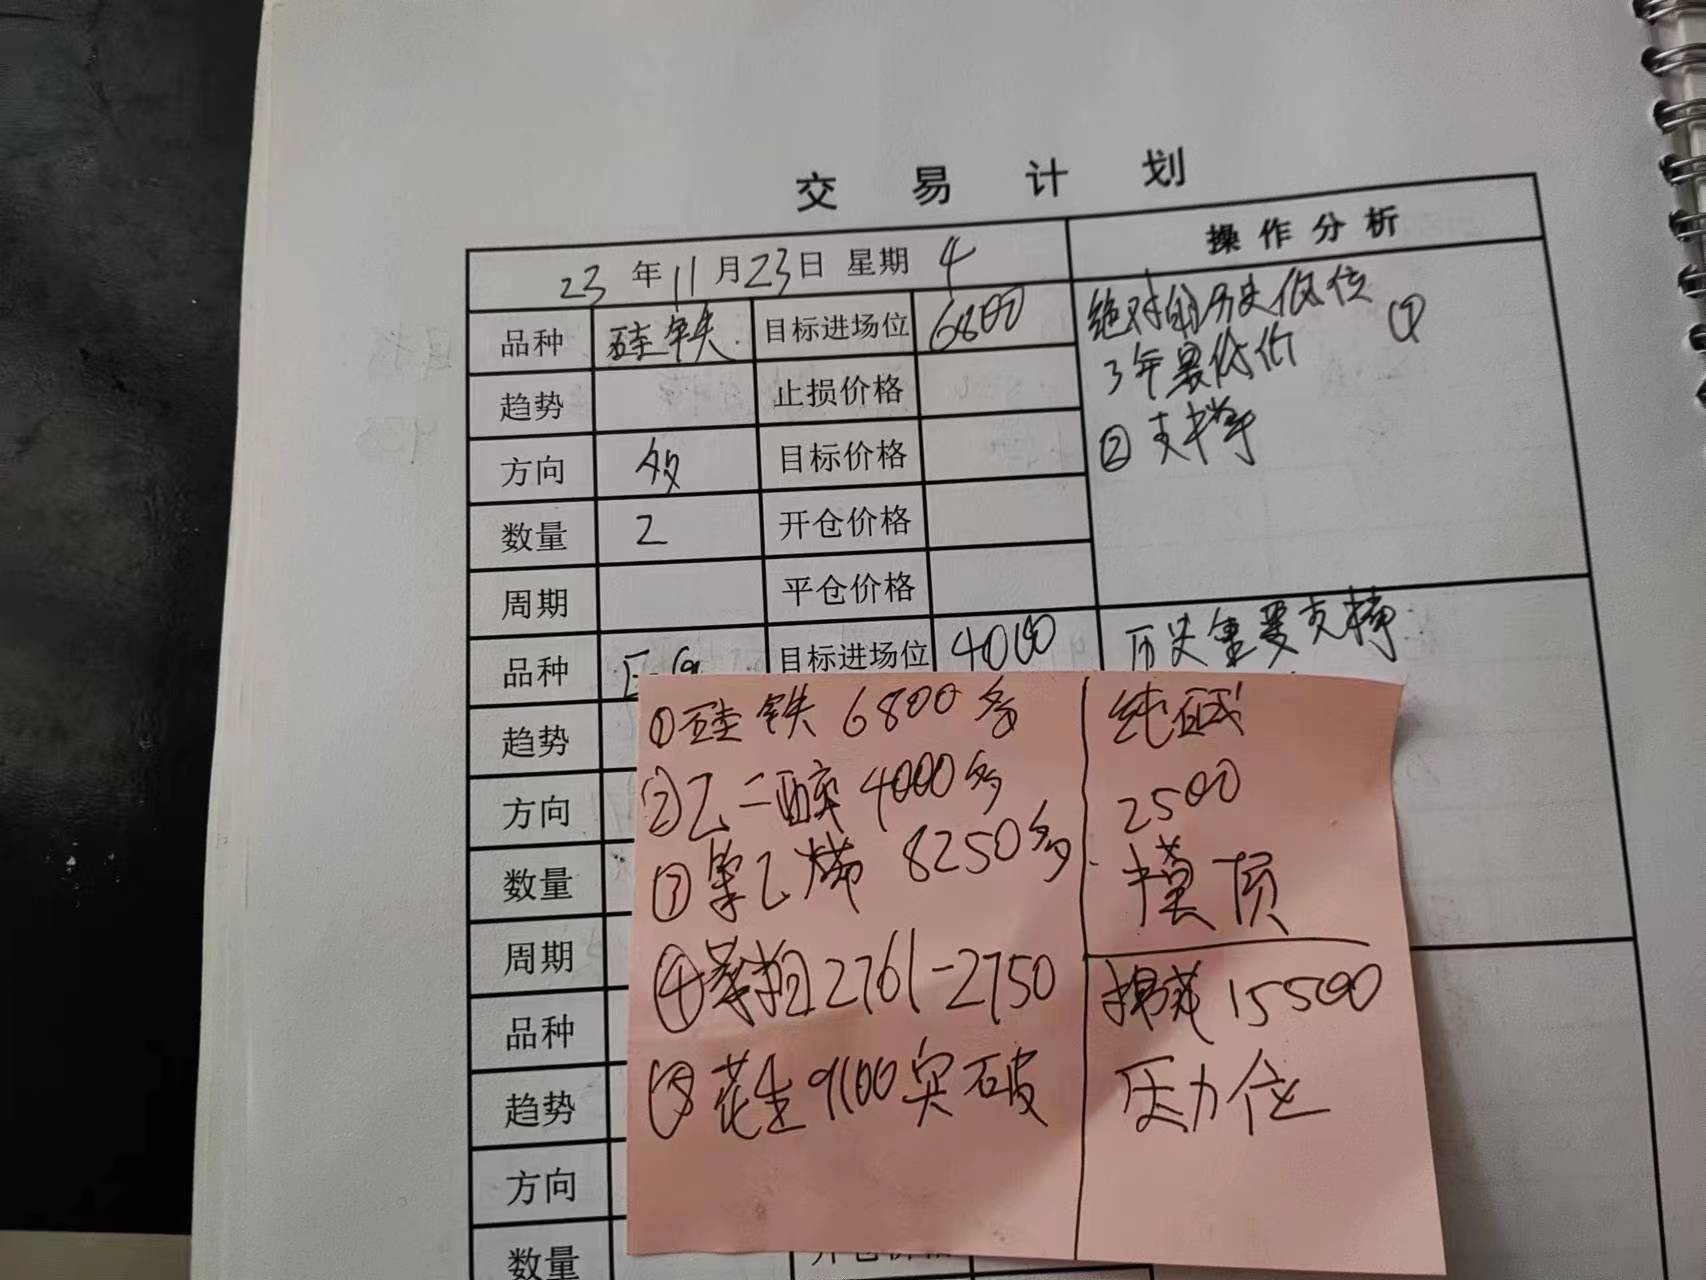 交易计划
23年11月23日 星期4
操作分析
品种 硅铁 目标进场位 6800
绝对的历史低位 ①
3年最低价
② 支撑
趋势 止损价格
方向 多 目标价格
数量 2 开仓价格
周期 平仓价格
品种 目标进场位 4000
历史重要支撑
趋势
方向
数量
周期
品种
趋势
方向
数量
①硅铁 6800多
②乙二醇 4000多
③苯乙烯 8250多
④菜粕2761-2750
⑤花生9100突破
纯碱
2500
摸顶
棉花 15500
压力位